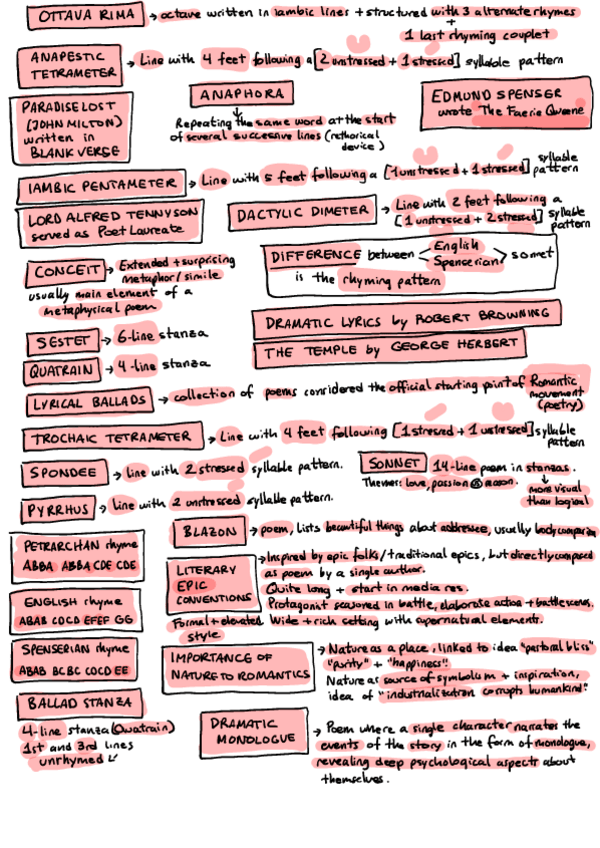 OTTAVA RIMA → octave written in iambic lines + structured with 3 alternate rhymes
+
1 last rhyming couplet
ANAPESTIC
TETRAMETER → Line with 4 feet following a [2 unstressed + 1 stressed] syllable pattern
PARADISE LOST
(JOHN MILTON)
written in
BLANK VERSE
ANAPHORA
Repeating the same word at the start
of several successive lines (rethorical
device)
EDMUND SPENSER
wrote The Faerie Queene
IAMBIC PENTAMETER → Line with 5 feet following a [1 unstressed + 1 stressed] syllable
pattern
LORD ALFRED TENNYSON
served as Poet Laureate
DACTYLIC DIMETER → Line with 2 feet following a
[1 unstressed + 2 stressed] syllable
pattern
CONCEIT → Extended + surprising
metaphor / simile
usually main element of a
metaphysical poem
DIFFERENCE between English
Spenserian sonnet
is the rhyming pattern
DRAMATIC LYRICS by ROBERT BROWNING
THE TEMPLE by GEORGE HERBERT
SESTET → 6-line stanza
QUATRAIN → 4-line stanza
LYRICAL BALLADS → collection of poems considered the official starting point of Romantic
movement
(poetry)
TROCHAIC TETRAMETER → Line with 4 feet following [1 stressed + 1 unstressed] syllable
pattern
SPONDEE → line with 2 stressed syllable pattern.
SONNET 14-line poem in stanzas.
Themes: love, passion reason.
↓
more visual
than logical
PYRRHUS → line with 2 unstressed syllable pattern.
BLAZON → poem, lists beautiful things about addressee, usually body comparison
PETRARCHAN rhyme
ABBA ABBA CDE CDE
LITERARY
EPIC
CONVENTIONS
→ Inspired by epic folks/traditional epics, but directly composed
as poem by a single author.
Quite long + start in media res.
Protagonist seasoned in battle, elaborate action + battle scenes.
Formal + elevated
style
Wide + rich setting with supernatural elements.
ENGLISH rhyme
ABAB CDCD EFEF GG
SPENSERIAN rhyme
ABAB BCBC CDCD EE
IMPORTANCE OF
NATURE TO ROMANTICS
→ Nature as a place, linked to idea "pastoral bliss"
"purity" + "happiness".
Nature as source of symbolism + inspiration,
idea of "industrialization corrupts humankind".
BALLAD STANZA
4-line stanza (Quatrain)
1st and 3rd lines
unrhymed
DRAMATIC
MONOLOGUE
→ Poem where a single character narrates the
events of the story in the form of monologue,
revealing deep psychological aspects about
themselves.